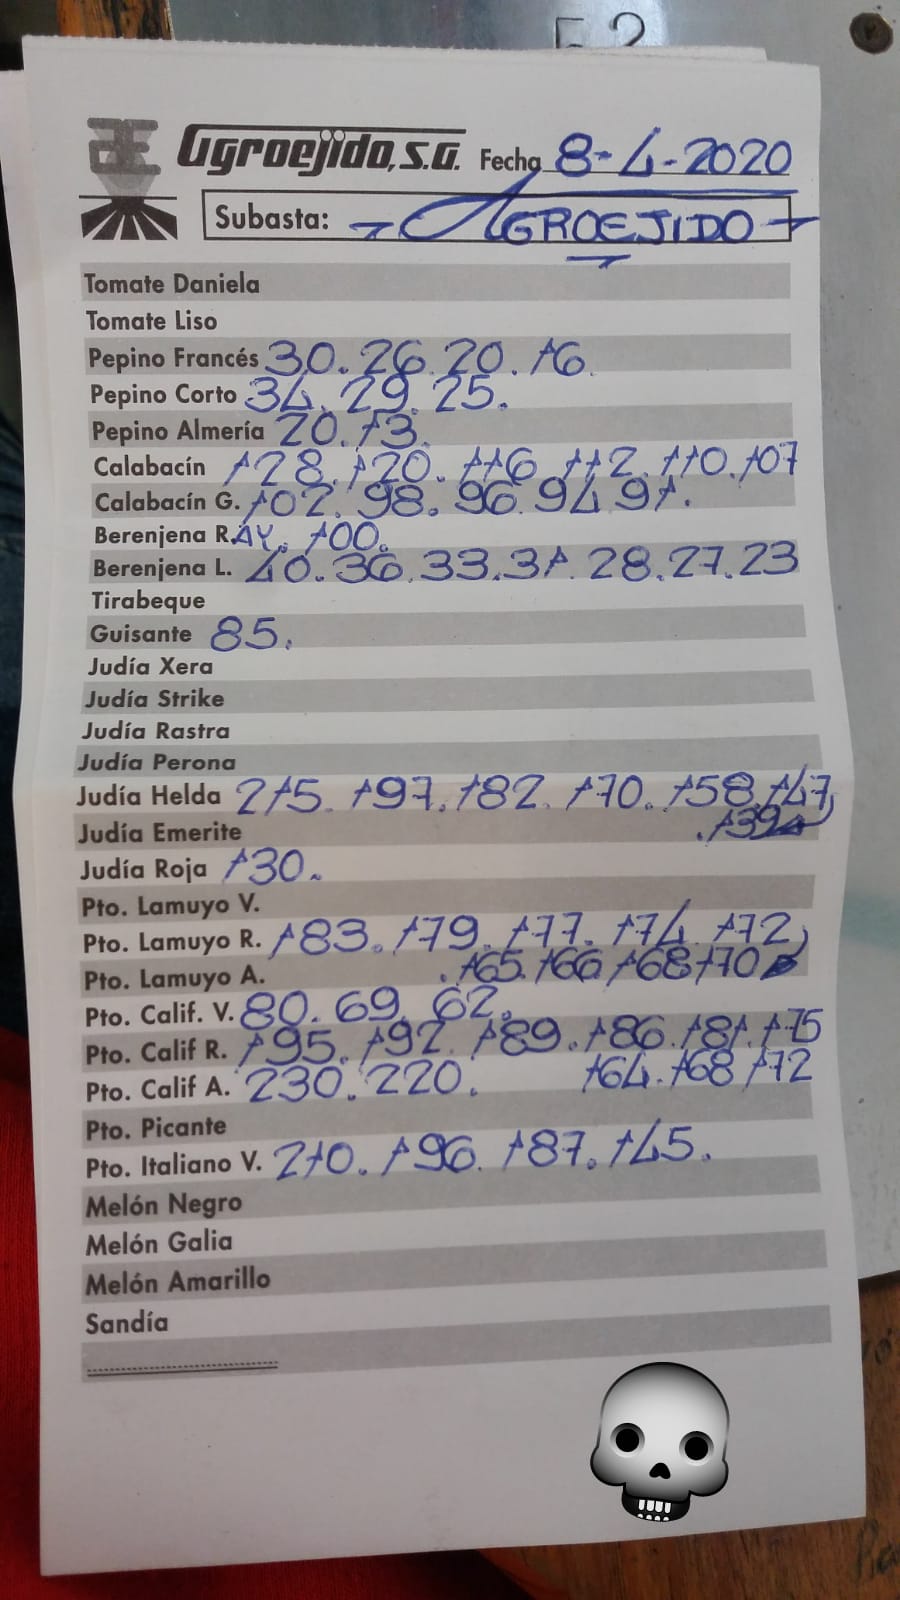 F2
Agroejido, S.A. Fecha 8-4-2020
Subasta: AGROEJIDO
Tomate Daniela
Tomate Liso
Pepino Francés 30. 26. 20. 16.
Pepino Corto 34. 29. 25.
Pepino Almería 20. 13.
Calabacín 128. 120. 116. 112. 110. 107
Calabacín G. 102. 98. 96. 94. 91.
Berenjena R.AY. 100.
Berenjena L. 40. 36. 33. 31. 28. 27. 23
Tirabeque
Guisante 85.
Judía Xera
Judía Strike
Judía Rastra
Judía Perona
Judía Helda 215. 197. 182. 170. 158. 147
Judía Emerite . 139
Judía Roja 130.
Pto. Lamuyo V.
Pto. Lamuyo R. 183. 179. 177. 174. 172
Pto. Lamuyo A. . 165. 166 168 170
Pto. Calif. V. 80. 69. 62.
Pto. Calif R. 195. 192. 189. 186. 181. 175
Pto. Calif A. 230. 220. 164. 168 172
Pto. Picante
Pto. Italiano V. 210. 196. 187. 145.
Melón Negro
Melón Galia
Melón Amarillo
Sandía